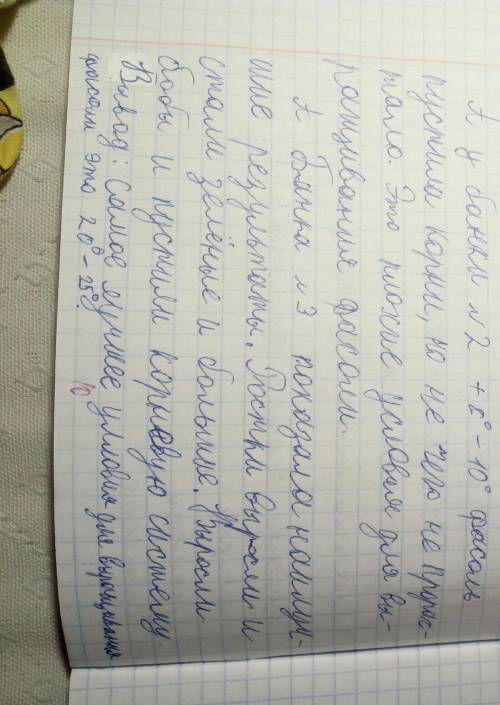 А у банки №2 +8°-10° фасоль
пустила корни, но не чего не пророс-
тало. Это плохие условия для вы-
ращивания фасоли.
А банка №3 показала наилуч-
шие результаты. Ростки выросли и
стали зелёные и большие. Выросли
бобы и пустили корневую систему.
Вывод: Самое лучшее условия для выращивания
фасоли это 20°-25°.
10